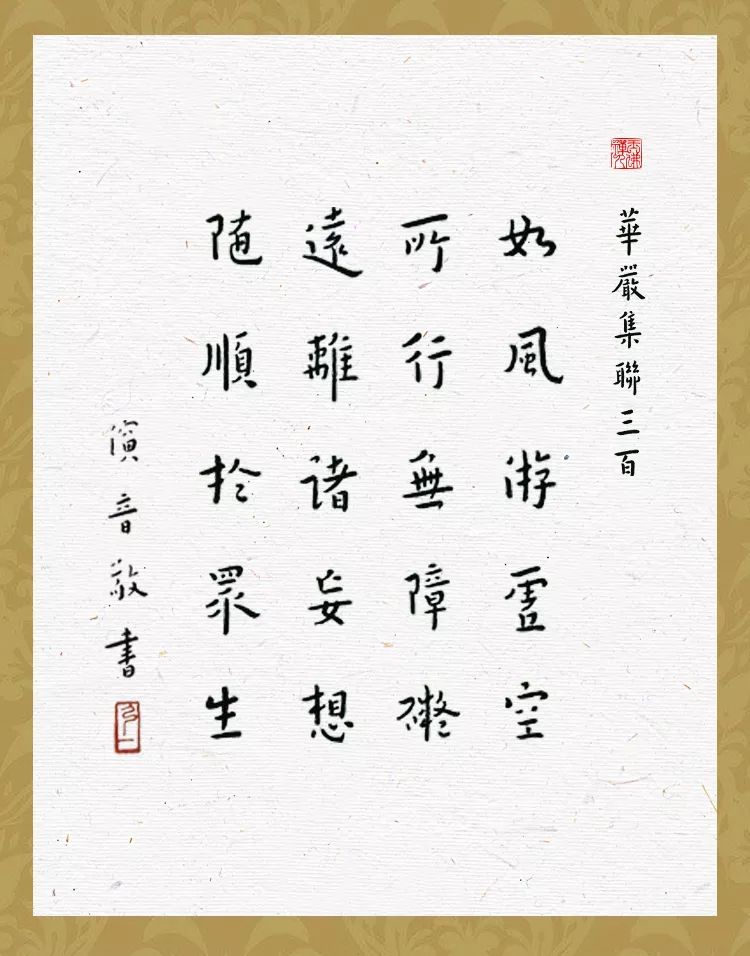 華嚴集聯三百
如風游虛空
所行無障礙
遠離諸妄想
隨順於眾生
演音敬書